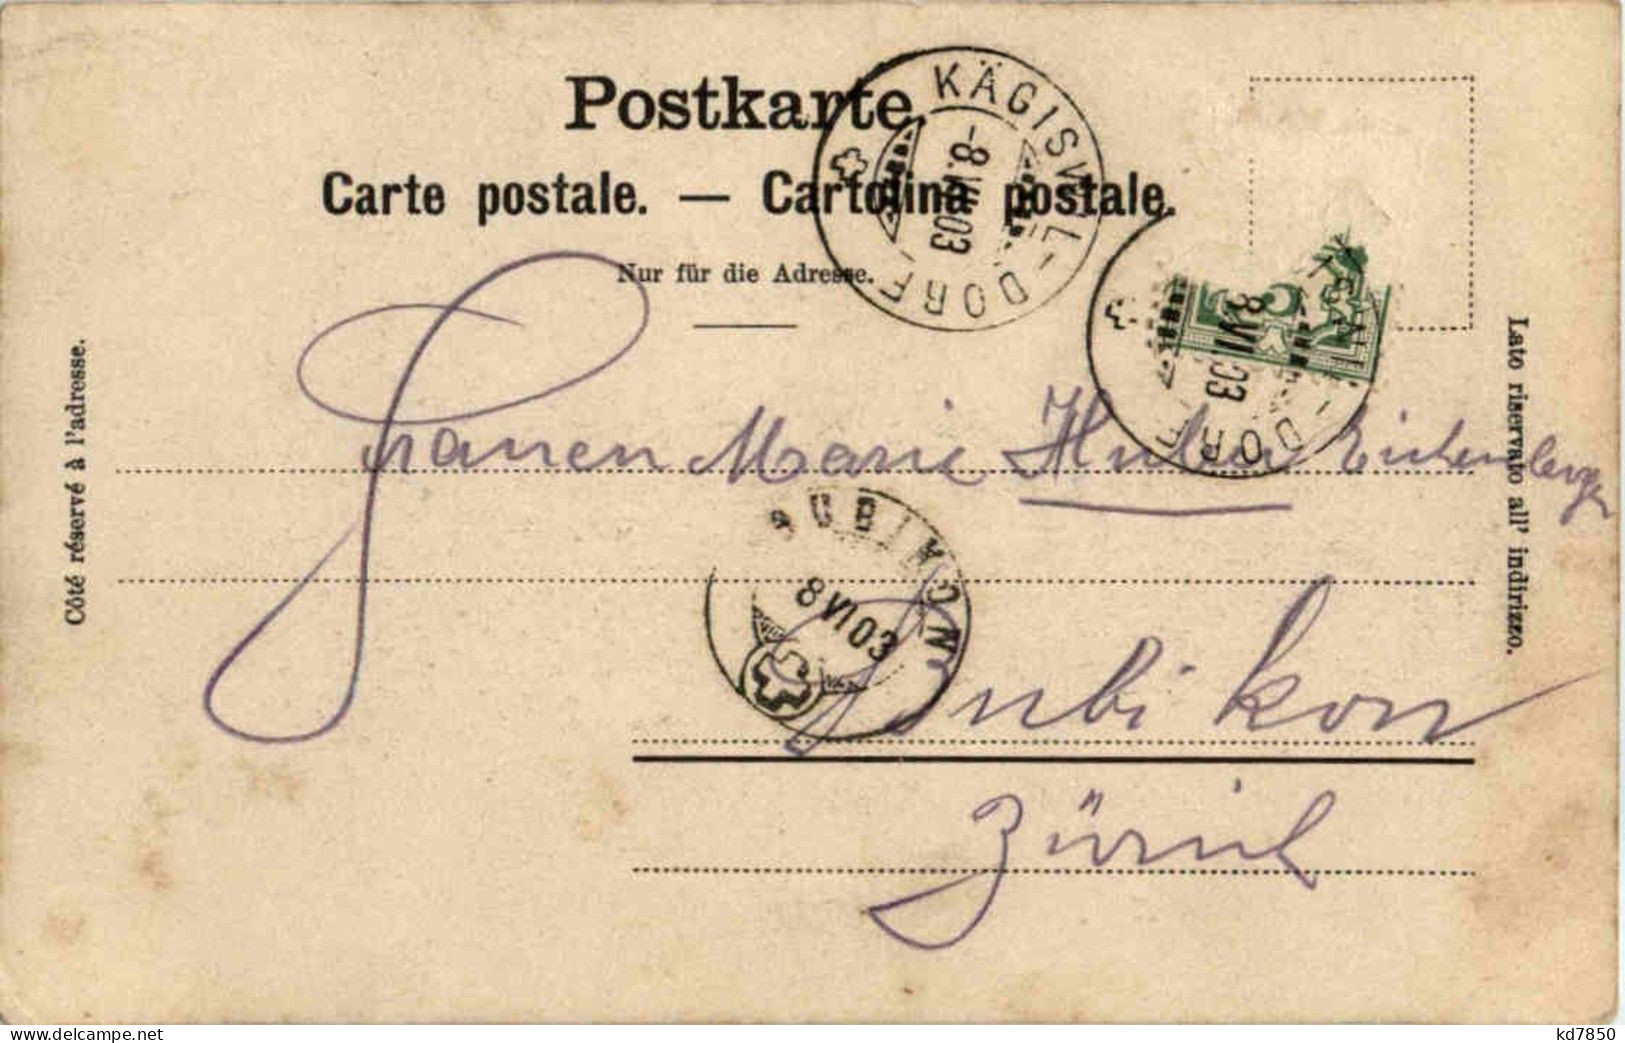 Postkarte.
Carte postale. — Cartolina postale.
Nur für die Adresse.
KÄGISWIL-DORF
-8.VI.03
DORF
8.VI.03
Côté réservé à l'adresse.
Lato riservato all' indirizzo.
Frauen Marie Huber Eichenberger
BUBIKON
8 VI 03
Bubikon
Zürich
delcampe.net
kd7850